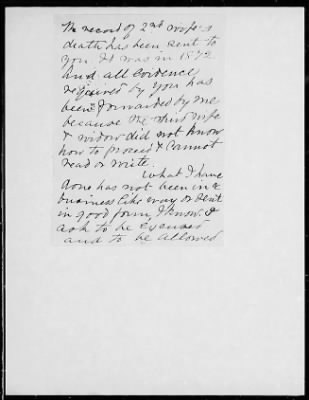 The record of 2nd wife's
death has been sent to
you It was in 1872
And all Evidence
required by you has
been forwarded by me
because the third wife
& widow did not know
how to proceed & Cannot
read or write.
What I have
done has not been in a
business like way or sent
in good form, I know. &
ask to be Excused
and to be allowed